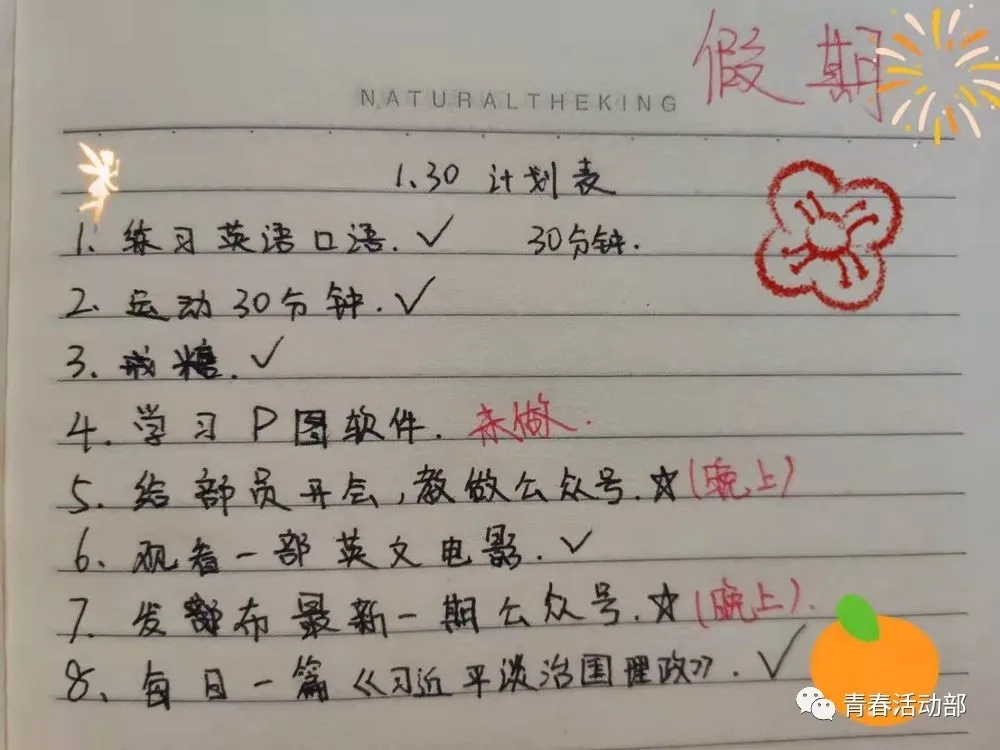 假期
NATURALTHEKING
1.30 计划表
1. 练习英语口语. ✓ 30分钟.
2. 运动30分钟. ✓
3. 戒糖. ✓
4. 学习P图软件. 未做.
5. 给部员开会,教做公众号. ☆(晚上)
6. 观看一部英文电影. ✓
7. 发布最新一期公众号. ☆(晚上).
8. 每日一篇《习近平谈治国理政》. ✓
青春活动部